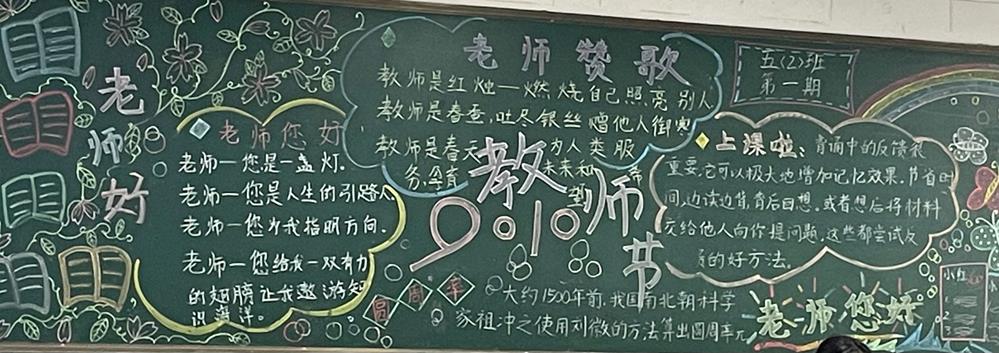 老师好
老师您好
老师—您是一盏灯.
老师—您是人生的引路人
老师—您为我指明方向.
老师—您给我一双有力
的翅膀让我遨游知
识海洋.
老师赞歌
教师是红烛—燃烧自己照亮别人
教师是春蚕,吐尽银丝赠他人御寒
教师是春天 为人类服
务,孕育 未来和
希望
教师节
9.10
五(2)班
第一期
上课啦:背诵中的反馈很
重要,它可以极大地增加记忆效果.节省时
间,边读边背,背后回想.或者想后将材料
交给他人向你提问题,这些都尝试反
的好方法.
圆周率
大约1500年前,我国南北朝科学
家祖冲之使用刘徽的方法算出圆周率
老师您好